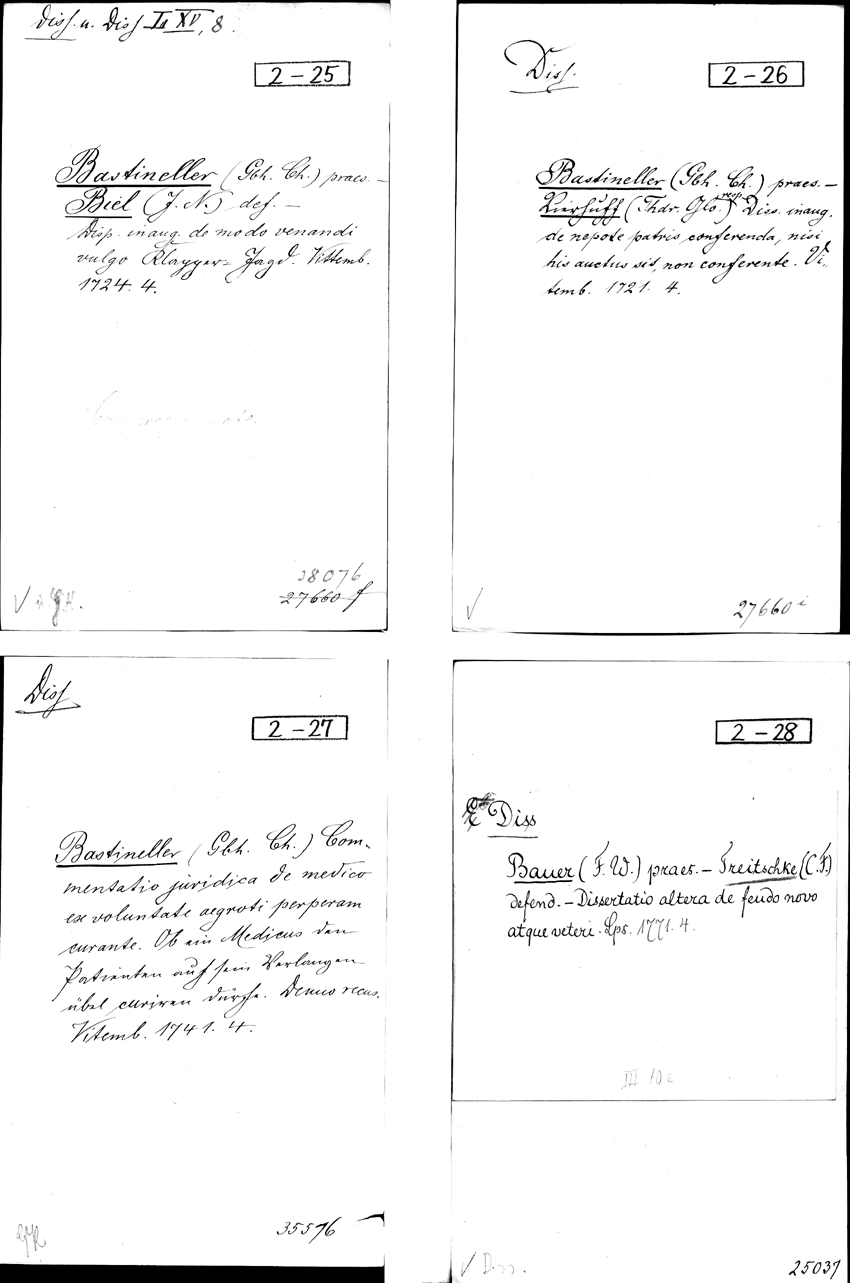 Diss. u. Diss. La XV, 8.
2-25
Bastineller (Gbh. Ch.) praes. –
Biel (J. N.) def. –
Disp. inaug. de modo venandi
vulgo Klapper-Jagd. Vittemb.
1724. 4.
38076
27660 f
V
Diss.
2-26
Bastineller (Gbh. Ch.) praes. –
Lierhuff (Thdr. Glo.) resp. Diss. inaug.
de nepote patris conferenda, nisi
his auctus sit, non conferente. Vi-
temb. 1721. 4.
V
27660 i
Diss
2-27
Bastineller (Gbh. Ch.) Com-
mentatio juridica de medico
ex voluntate aegroti perperam
curante. Ob ein Medicus den
Patienten auf sein Verlangen
übel curiren dürfe. Denuo recus.
Vitemb. 1741. 4.
35576
2-28
Diss
Bauer (F. W.) praes. – Treitschke (C. F.)
defend. – Dissertatio altera de feudo novo
atque veteri. Lps. 1771. 4.
III 10 c
V Diss.
25037